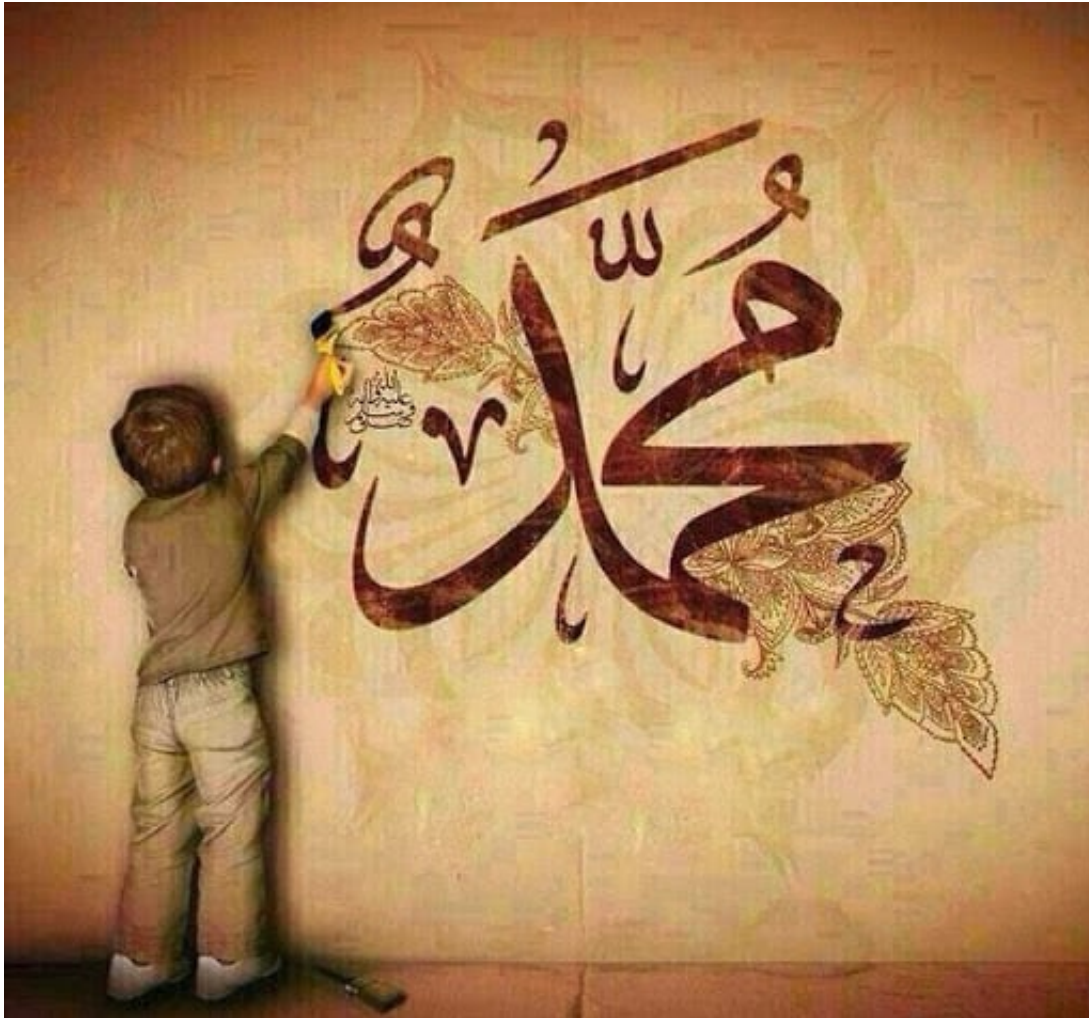 مُحَمَّد
صلى الله عليه وآله وسلم